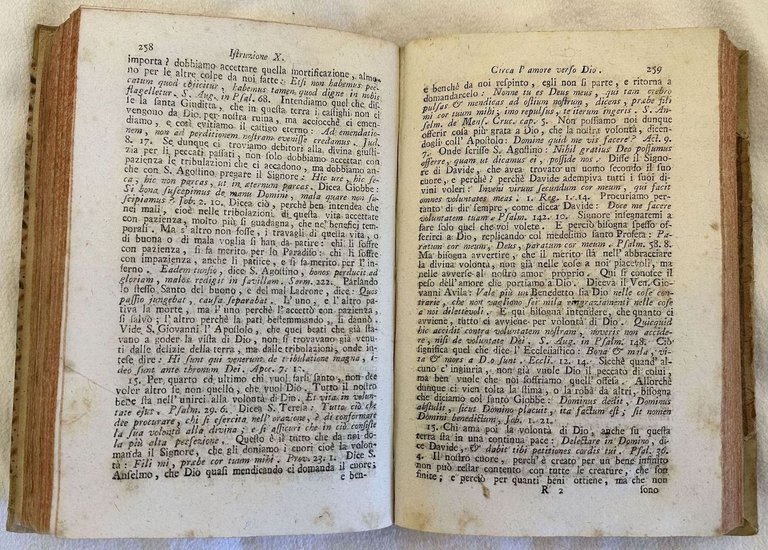 258
Istruzione X.
importa? dobbiamo accettare quella mortificazione, alme-
no per le altre colpe da noi fatte: Etsi non habemus pec-
catum quod objicitur, habemus tamen quod digne in nobis
flagelletur. S. Aug. in Psal. 68. Intendiamo quel che dis-
se la santa Giuditta, che in questa terra i castighi non ci
vengono da Dio per nostra ruina, ma acciocchè ci emen-
diamo, e così evitiamo il castigo eterno: Ad emendatio-
nem, non ad perditionem nostram evenisse credamus. Judith
8. 17. Se dunque ci troviamo debitori alla divina giusti-
zia per li peccati passati, non solo dobbiamo accettar con
pazienza le tribulazioni che ci accadono, ma dobbiamo an-
che con S. Agostino pregare il Signore: Hic ure, hic se-
ca, hic non parcas, ut in æternum parcas. Dicea Giobbe:
Si bona suscepimus de manu Domini, mala quare non su-
scipiamus? Job. 2. 10. Dicea ciò, perchè ben intendea che
nei mali, cioè nelle tribulazioni di questa vita accettate
con pazienza, molto più si guadagna, che ne' beneficj tem-
porali. Ma s'altro non fosse, i travagli di questa vita, o
di buona o di mala voglia si han da patire: chi li soffre
con pazienza, si fa merito per lo Paradiso: chi li soffre
con impazienza, anche li patisce, e si fa merito per l'in-
ferno. Eadem tunsio, dice S. Agostino, bonos perducit ad
gloriam, malos redigit in favillam. Serm. 222. Parlando
lo stesso Santo del buono, e del mal Ladrone, dice: Quos
passio jungebat, causa separabat. L'uno, e l'altro pa-
tiva la morte, ma l'uno perchè l'accettò con pazienza,
si salvò; l'altro perchè la patì bestemmiando, si dannò.
Vide S. Giovanni l'Apostolo, che quei beati che già sta-
vano a goder la vista di Dio, non si trovavano già ve-
nuti dalle delizie della terra, ma dalle tribolazioni, onde in-
tese dire: Hi sunt qui venerunt de tribulatione magna, i-
deo sunt ante thronum Dei. Apoc. 7. 17.
15. Per quarto ed ultimo chi vuol farsi santo, non dee
voler altro se non quello, che vuol Dio. Tutto il nostro
bene sta nell'unirci alla volontà di Dio. Et vita in volun-
tate ejus. Psalm. 29. 6. Dicea S. Teresa: Tutto ciò che
dee procurare, chi si esercita nell'orazione, è di conformare
la sua volontà alla divina; e si assicuri che in ciò consiste
la più alta perfezione. Questo è il tutto che da noi do-
manda il Signore, che gli doniamo i cuori cioè la volon-
tà: Fili mi, præbe cor tuum mihi. Prov. 23. 1. Dice S.
Anselmo, che Dio quasi mendicando ci domanda il cuore;
e ben-
Circa l'amore verso Dio.
259
e benchè da noi respinto, egli non si parte, e ritorna a
domandarcelo: Nonne tu es Deus meus, qui tam crebro
pulsas & mendicas ad ostium nostrum, dicens, præbe fili
mi cor tuum mihi; imo repulsus, te iterum ingeris. S. An-
selm. de Mens. Cruc. cap. 5. Non possiamo noi dunque
offerir cosa più grata a Dio, che la nostra volontà, dicen-
dogli coll' Apostolo: Domine quid me vis facere? Act. 9.
7. Onde scrisse S. Agostino: Nihil gratius Deo possumus
offerre, quam ut dicamus ei, posside nos. Disse il Signo-
re di Davide, che avea trovato un uomo secondo il suo
cuore, e perchè? perchè Davide adempiva tutti i suoi di-
vini voleri: Inveni virum secundum cor meum, qui facit
omnes voluntates meas. 1. Reg. 1. 14. Procuriamo per-
tanto di dir sempre, come dicea Davide: Doce me facere
voluntatem tuam. Psalm. 142. 10. Signore insegnatemi a
far solo quel che voi volete. E perciò bisogna spesso of-
ferirci a Dio, replicando col medesimo santo Profeta: Pa-
ratum cor meum, Deus, paratum cor meum. Psalm. 58. 8.
Ma bisogna avvertire, che il merito sta nell'abbracciare
la divina volontà, non già nelle cose a noi piacevoli, ma
nelle avverse al nostro amor proprio. Qui si conosce il
peso dell'amore che portiamo a Dio. Diceva il Ven. Gio-
vanni Avila: Vale più un Benedetto sia Dio nelle cose con-
trarie, che non vagliono sei mila ringraziamenti nelle cose
a noi dilettevoli. E qui bisogna intendere, che quanto ci
avviene, tutto ci avviene per volontà di Dio. Quicquid
hic accidit contra voluntatem nostram, noveris non acci-
dere, nisi de voluntate Dei. S. Aug. in Psal. 148. Ciò
significa quel che dice l'Ecclesiastico: Bona & mala, vi-
ta & mors a Deo sunt. Eccli. 12. 14. Sicchè quando al-
cuno c'ingiuria, non già vuole Dio il peccato di colui,
ma ben vuole che noi soffriamo quell'offesa. Allorchè
dunque ci vien tolta la stima, o la roba da altri, bisogna
che diciamo col santo Giobbe: Dominus dedit, Dominus
abstulit, sicut Domino placuit, ita factum est; sit nomen
Domini benedictum. Job. 1. 21.
15. Chi ama poi la volontà di Dio, anche su questa
terra sta in una continua pace: Delectare in Domino, di-
ce Davide, & dabit tibi petitiones cordis tui. Psal. 36.
4. Il nostro cuore, perch'è creato per un bene infinito
non può restar contento con tutte le creature, che son
finite; e perciò per quanti beni ottiene, ma che non
R 2
sono